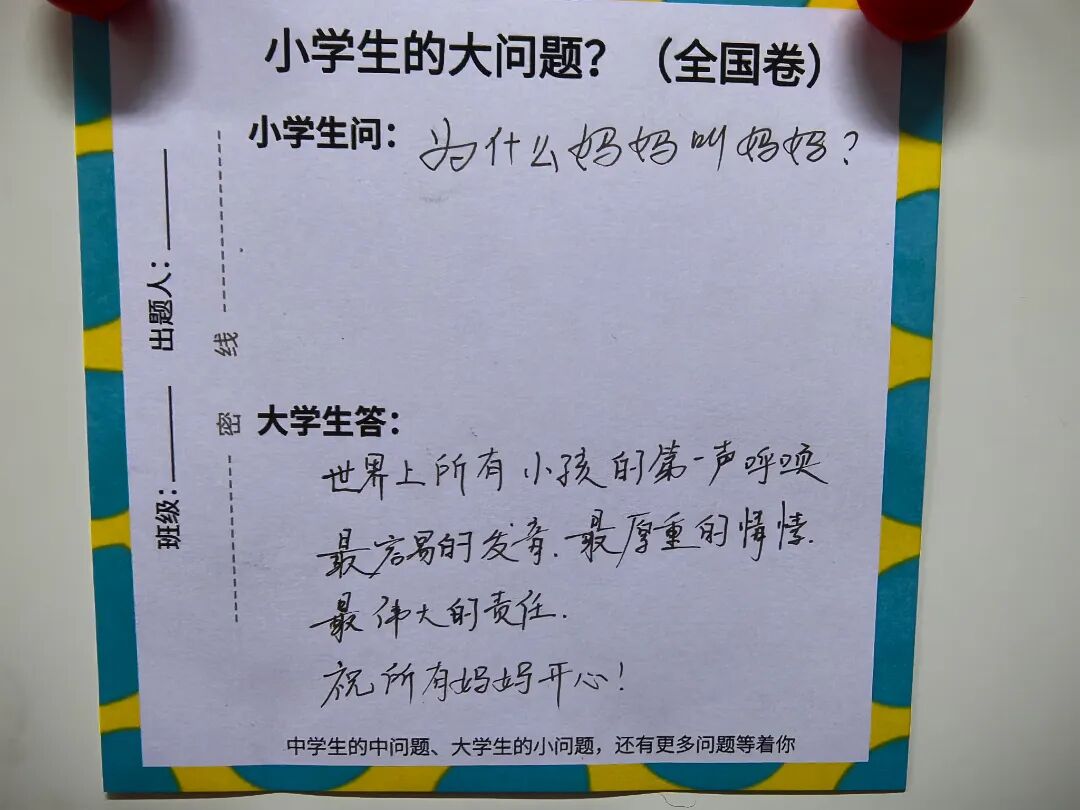 小学生的大问题？（全国卷）
小学生问：为什么妈妈叫妈妈？
出题人：
班级：
密
线
大学生答：
世界上所有小孩的第一声呼唤
最容易的发音.最厚重的情愫.
最伟大的责任.
祝所有妈妈开心！
中学生的中问题、大学生的小问题，还有更多问题等着你